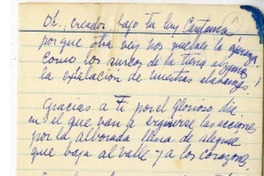 Oh, creador bajo tu luz cantamos
porque otra vez nos vuelve la
como los surcos de la tierra
la exhalación de nuestras alabanzas!
Gracias a Ti por el glorioso día
en el que van a erguirse las
por la alborada llena de alegría
que baja al valle y a los corazones,